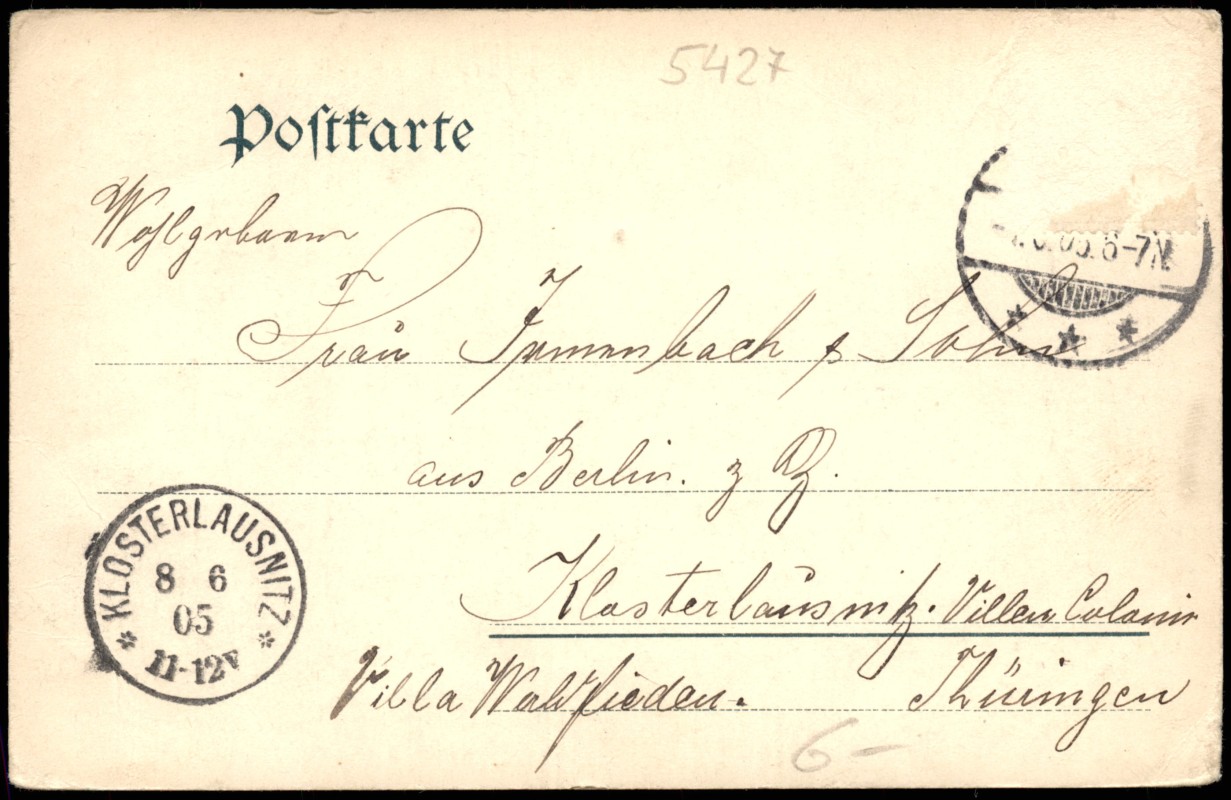 5427
Postkarte
Wohlgeboren
-7.6.05. 6-7N.
Frau Irmenbach & Sohn
aus Berlin. z Z.
KLOSTERLAUSNITZ
8 6
05
11-12V
Klosterlausnitz. Villen Colonie
Villa Waldfrieden. Thüringen
6-